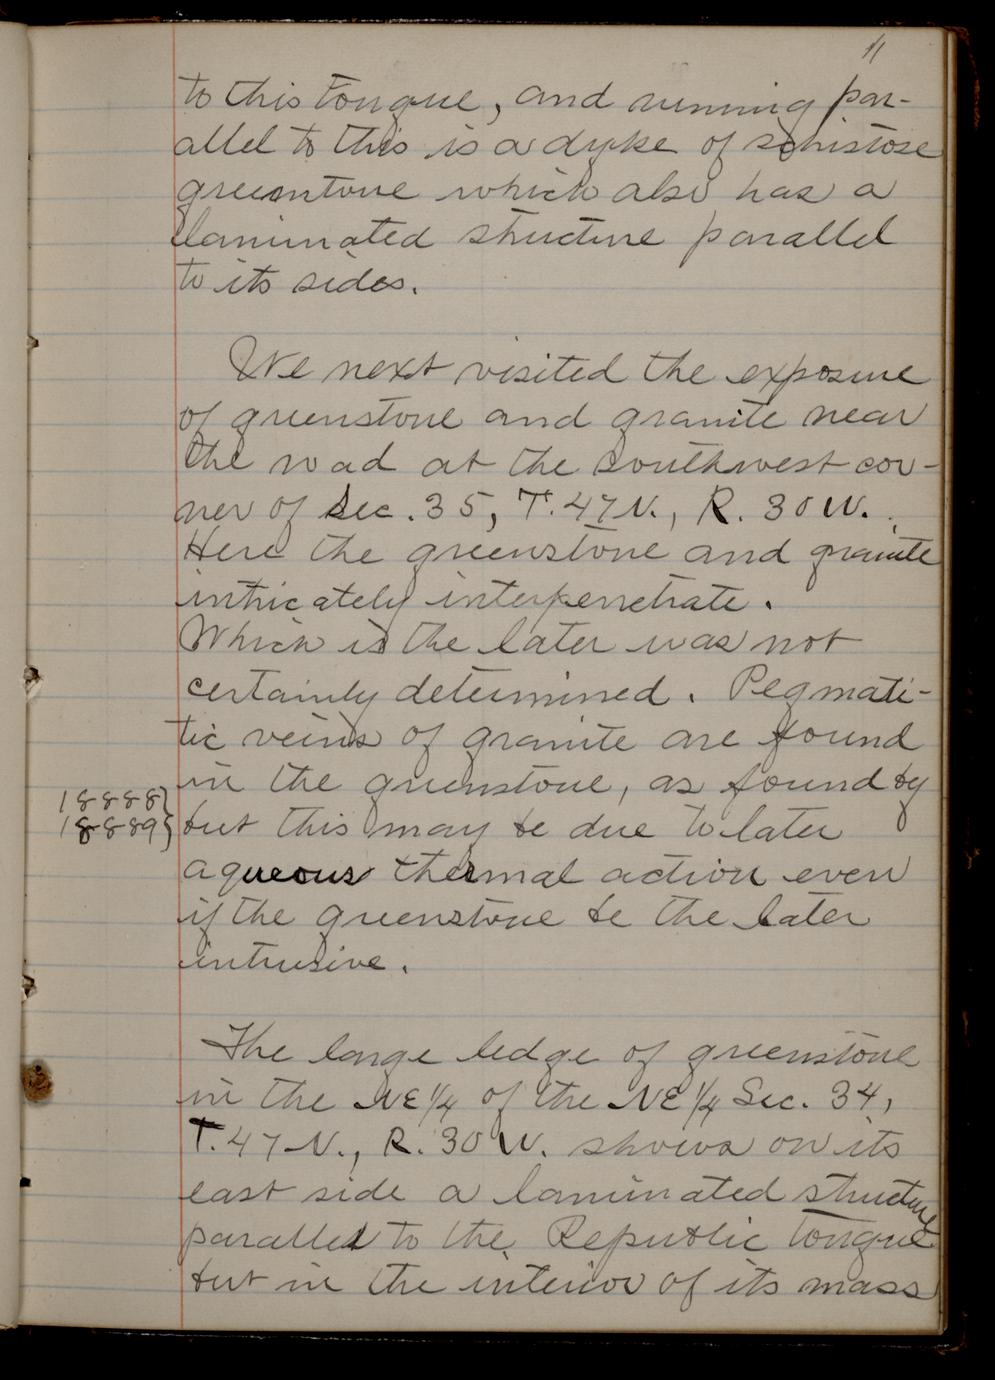 11
to this Tongue, and running par-
allel to this is a dyke of schistose
greenstone which also has a
laminated structure parallel
to its sides.
We next visited the exposure
of greenstone and granite near
the road at the Southwest cor-
ner of Sec. 35, T. 47 N., R. 30 W.
Here the greenstone and granite
intricately interpenetrate.
Which is the later was not
certainly determined. Pegmati-
tic veins of granite are found
in the greenstone, as found by
18888}
18889} but this may be due to later
aqueous thermal action even
if the greenstone be the later
intrusive.
The large ledge of greenstone
in the NE 1/4 of the NE 1/4 Sec. 34,
T. 47 N., R. 30 W. shows on its
east side a laminated structure
parallel to the Republic Tongue
but in the interior of its mass